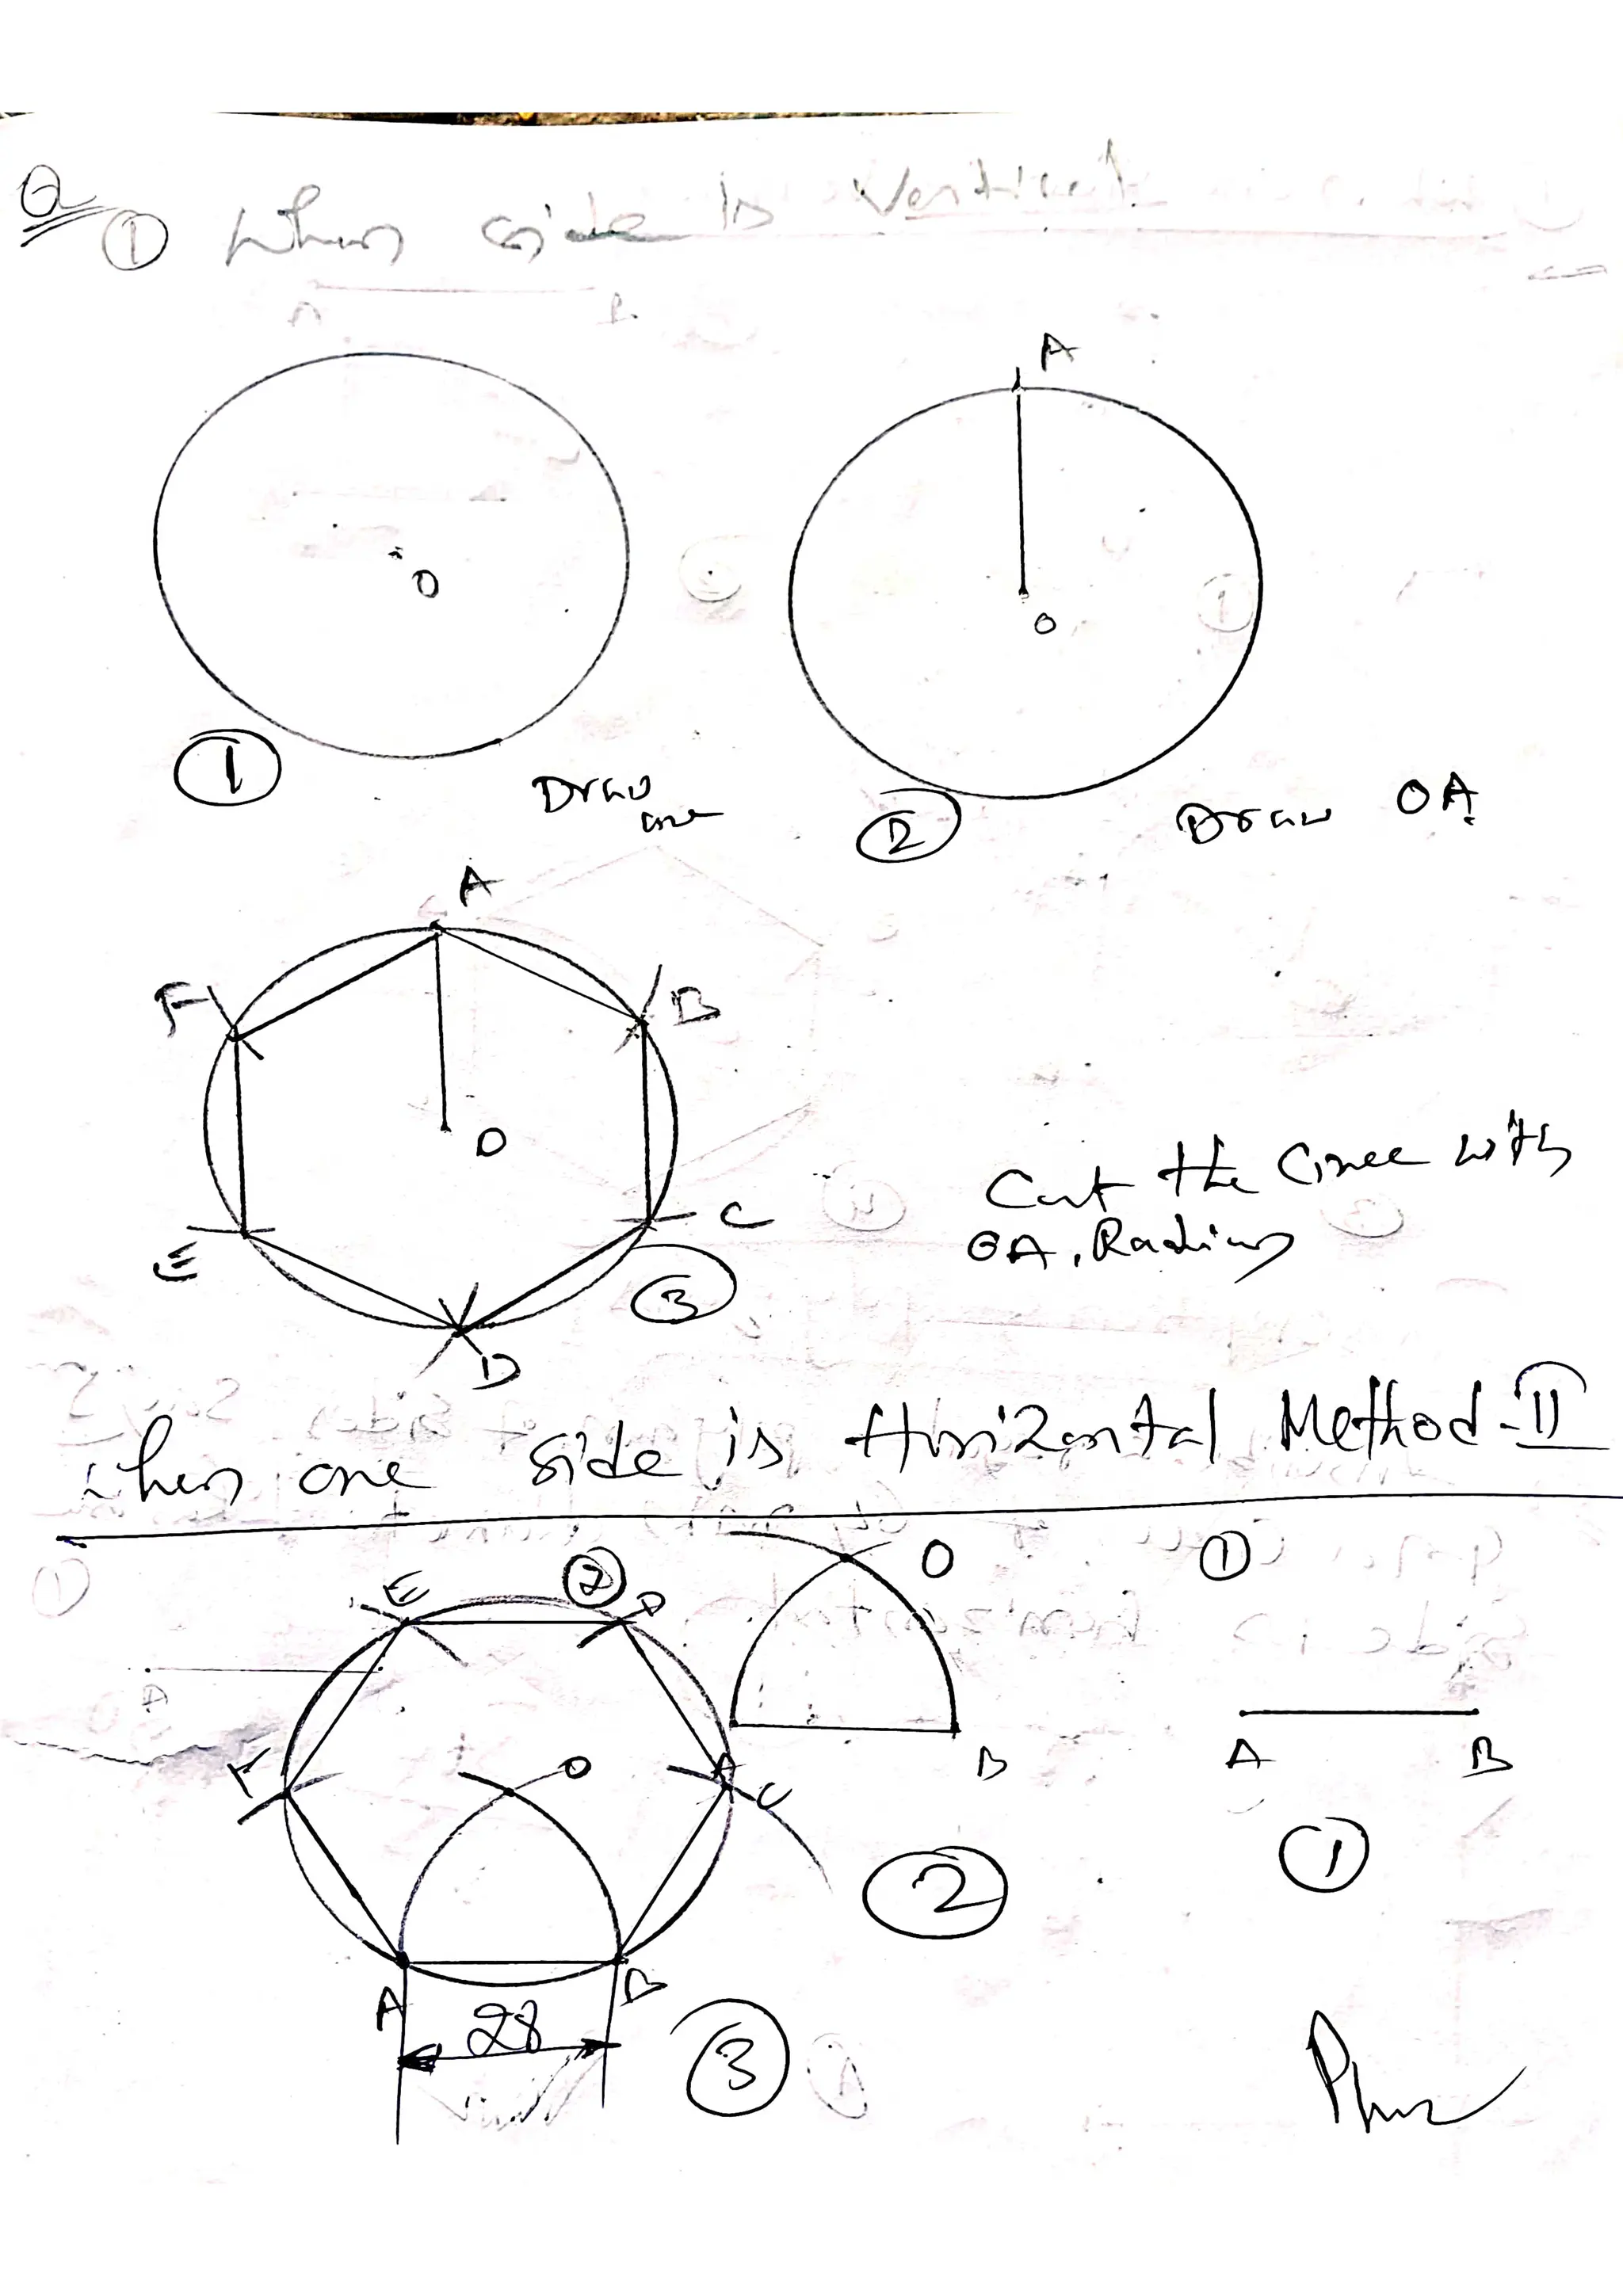 Q
① When side is Vertical
A
O
O
①
Draw
②
Draw OA.
A
F
B
O
Cut the Circle with
OA, Radius
E
C
③
D
When one side is Horizontal Method-II
E
②
D
O
①
F
O
A
C
B
A B
②
①
A
B
28
③